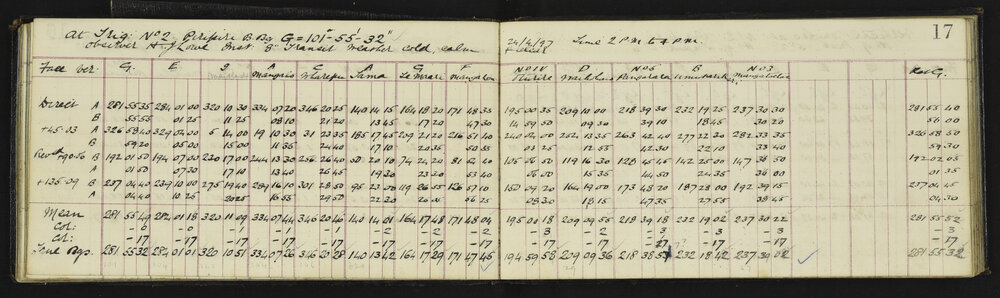 17
At Trig: No 2. Piripiri B Brg G = 101°-55'-32"
24/4/97
Time 2 P.M. to 4 P.M.
observer H.J. Lowe Inst. 8" Transit Weather cold, calm
Face ver. G. E D A C F No IV D No 5 B No 3 Ref G.
Direct A 281 55 35 284 01 00 320 10 30 334 07 20 346 20 25 140 14 15 164 18 20 171 48 35 195 00 35 209 10 00 218 39 30 232 19 25 237 30 30 281 55 40
B 55 55 01 25 11 25 08 10 21 20 13 45 17 20 47 30 14 59 50 09 30 39 10 18 45 30 20 56 00
+45.03 A 326 58 40 329 04 00 5 14 00 19 10 30 31 23 35 185 17 45 209 21 20 216 51 40 240 04 00 252 13 35 263 42 40 277 22 30 282 33 35 326 58 50
B 59 20 05 00 15 00 11 35 24 40 17 10 20 35 50 35 03 25 12 55 42 30 22 10 33 40 59 30
B 192 01 50 194 07 00 230 17 00 244 13 30 256 26 40 50 20 10 74 24 20 81 54 40 105 06 50 119 16 30 128 45 45 142 25 00 147 36 50 192 02 05
A 01 50 07 30 17 10 13 40 26 45 19 30 23 20 53 40 06 00 15 35 44 50 24 35 36 00 01 35
+135.09 B 237 04 40 239 10 00 275 19 40 289 16 10 301 28 50 95 23 00 119 26 55 126 57 10 150 09 20 164 19 00 173 48 20 187 28 00 192 39 15 237 04 45
A 04 40 10 25 20 25 16 55 29 50 22 30 26 05 56 25 08 30 18 15 47 35 27 55 38 45 04 30
Mean 281 55 49 284 01 18 320 11 09 334 07 44 346 20 46 140 14 01 164 17 48 171 48 04 195 00 18 209 09 55 218 39 18 232 19 02 237 30 22 281 55 52
Col: - 0 - 0 - 1 - 1 - 1 - 2 - 2 - 2 - 3 - 2 - 3 - 3 - 3 - 3
Col: - 17 - 17 - 17 - 17 - 17 - 17 - 17 - 17 - 17 - 17 - 17 - 17 - 17
True Brgs. 281 55 32 284 01 01 320 10 51 334 07 26 346 20 28 140 13 42 164 17 29 171 47 45 194 59 58 209 09 36 218 38 232 18 42 237 30 02 281 55 32